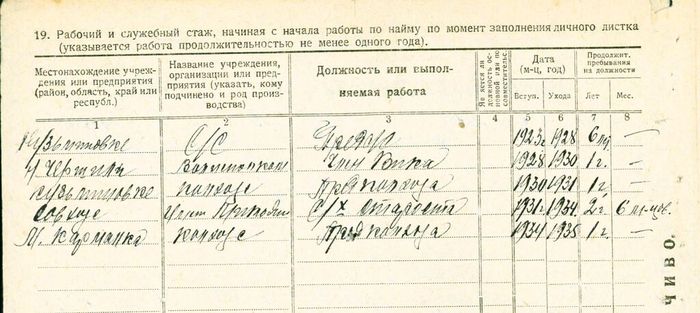 19. Рабочий и служебный стаж, начиная с начала работы по найму по момент заполнения личного листка
(указывается работа продолжительностью не менее одного года).
Местонахождение учрежде-
ния или предприятия
(район, область, край или
республ.)
Название учреждения,
организации или пред-
приятия (указать, кому
подчинено и род произ-
водства)
Должность или выпол-
няемая работа
Является ли
должность ос-
новной или по
совместительс.
Дата
(м-ц, год)
Вступ. Ухода
Продолжит.
пребывания
на должности
Лет Мес.
1 2 3 4 5 6 7 8
Кузьминовке С/С 1923г 1928 6
Н. Чершили 1928 1930 1 г.
Кузьминовке колхозе Пред колхоза 1930 1931 1 г.
Совхозе С/Х 1931г 1934 2 г 6
М. Кармалка колхозе Пред колхоза 1934 1935 1 г
ЧИВО.